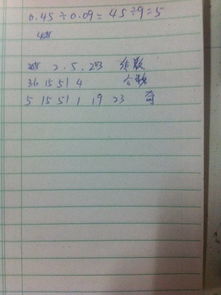 0.45÷0.09=45÷9=5
2.5.23
36 15 51 4 合数
5 15 51 1 19 23 奇